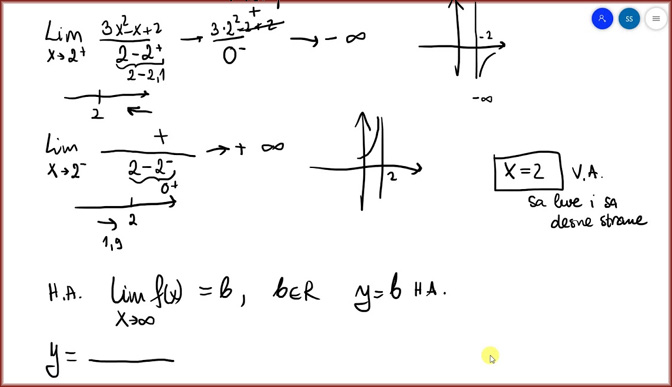 Lim 3x²-x+2 / 2-2⁺ → 3·2²-2+2 / 0⁻ → -∞
x→2⁺ 2-2,1
2
-2
-∞
Lim + / 2-2⁻ → + ∞
x→2⁻ 0⁺
2
1,9
2
x=2 V.A.
sa leve i sa
desne strane
H.A. lim f(x) = b, b∈R y=b H.A.
x→∞
y=
SS